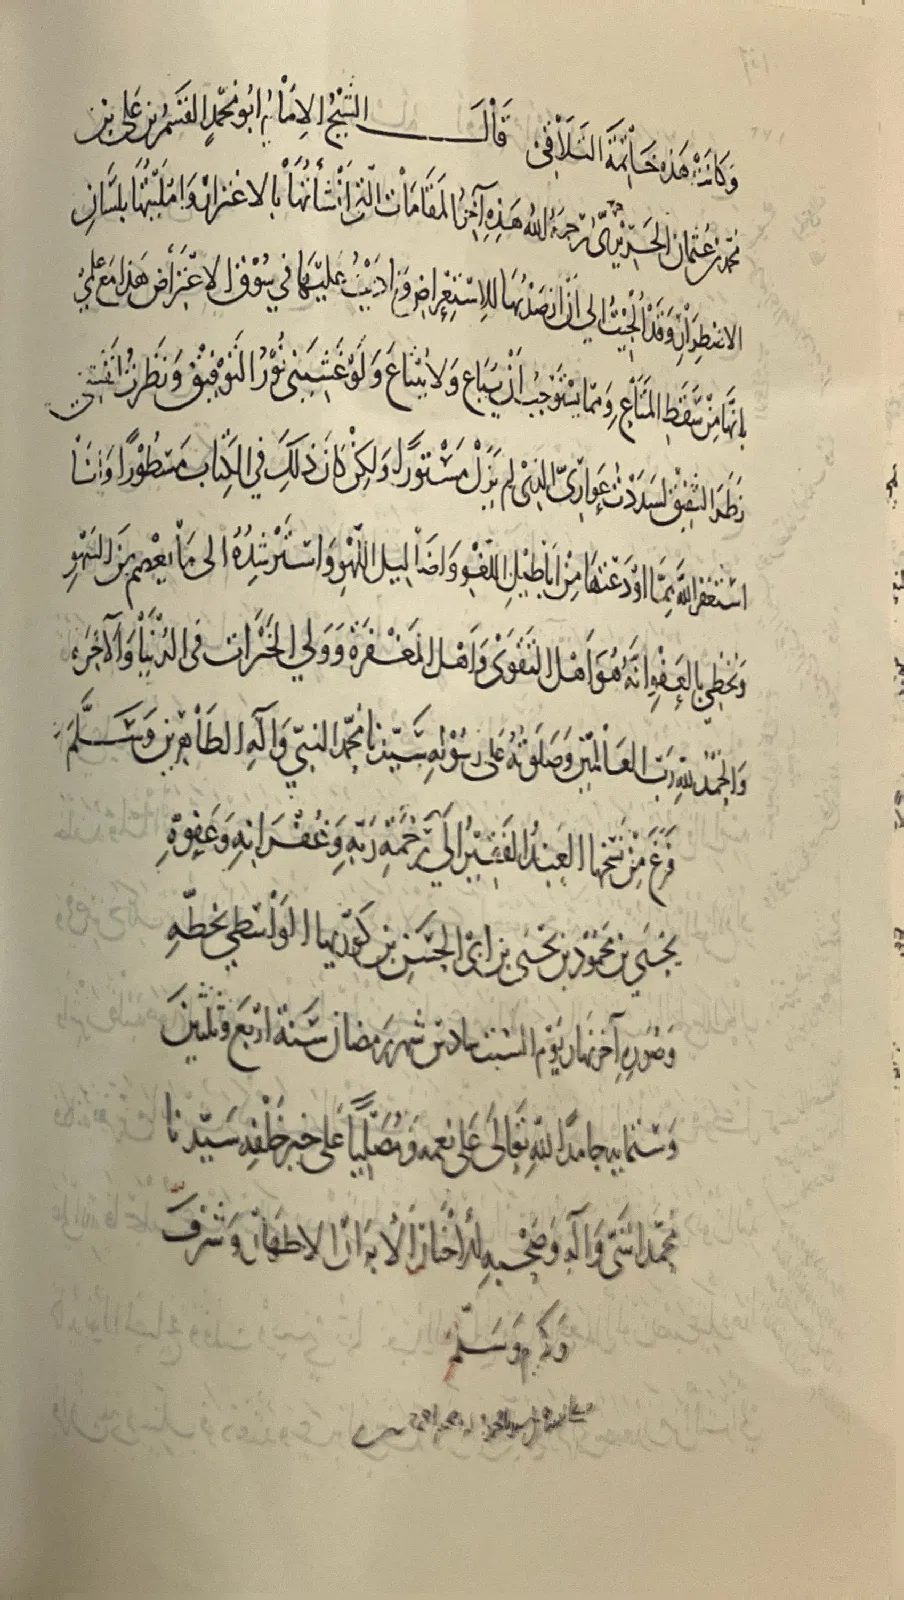 وَكَانَتْ هَذِهِ خَاتِمَةَ التَّلَاقِي قَالَ الشَّيْخُ الإِمَامُ ابُو مُحَمَّدٍ القسمُ بْنُ عَلِيِّ بْنِ
محمد بن عُثمان الحَرِيْرِيُّ رَحِمَهُ اللهُ هَذِهِ آخِرُ المَقَامَاتِ الَّتِي انْشَأْتُهَا بِالاغْتِرَارِ وَامْلَيْتُهَا بِلِسَانِ
الاضْطِرَارِ وَقَدْ أُلْجِئْتُ إلى أَنْ ارْصَدْتُهَا لِلاِسْتِعْرَاضِ وَنَادَيْتُ عَلَيْهَا فِي سُوْقِ الاعْتِرَاضِ هَذَا مَعَ عِلْمِي
بِانَّهَا مِنْ سَقَطِ المَتَاعِ وَمِمَّا يَسْتَوْجِبُ انْ يُبَاعَ وَلَا يُبْتَاعَ وَلَوْ غَشِيَنِي نُوْرُ التَّوْفِيْقِ وَنَظَرْتُ لِنَفْسِي
نَظَرَ الشَّفِيْقِ لَسَتَرْتُ عَوَارِيَ الَّذِي لَمْ يَزَلْ مَسْتُورًا وَلَكِنْ كَانَ ذَلِكَ فِي الكِتَابِ مَسْطُوْرًا وَانَا
اسْتَغْفِرُ اللهَ مِمَّا اوْدَعْتُهَا مِنْ ابَاطِيْلِ اللَّغْوِ وَاضَالِيلِ اللَّهْوِ وَاسْتَرْشِدُهُ الى مَا يَعْصِمُ مِنَ السَّهْوِ
وَيُحْظِي بِالعَفْوِ انَّهُ هُوَ اهْلُ التَّقْوَى وَاهْلُ المَغْفِرَةِ وَوَلِيُّ الخَيْرَاتِ فِي الدُّنْيَا وَالآخِرَه
وَالحَمْدُ لِلَّهِ رَبِّ العَالَمِيْنَ وَصَلَوتُهُ عَلَى رَسُوْلِهِ سَيِّدِنَا مُحَمَّدٍ النَّبِيِّ وَآلِهِ الطَّاهِرِيْنَ وَسَلَّمَ
فَرَغَ مِنْ نَسْخِهَا العَبْدُ الفَقِيْرُ إلَى رَحْمَةِ رَبِّهِ وَغُفْرَانِهِ وَعَفْوِهِ
يَحْيَى بْنُ مَحْمُوْدِ بن يَحْيَى بن ابي الحَسَنِ بن كُوَّرِّيها الوَاسِطِي بِخَطِّهِ
وَصُوَرِهِ آخِرَ نَهَارِ يَوْمِ السبت سادس شهر رَمَضانَ سَنَةَ ارْبَعَ وَثَلثِينَ
وَستمايه حامِدًا للهِ تَعَالَى عَلَى نِعَمِهِ وَمُصَلِّيًا عَلَى خير خَلْقِهِ سَيِّدِنا
مُحَمَّدٍ النَّبِيّ وَآلِهِ وَصَحْبِهِ الأَخْيَارِ الأَبْرَارِ الاطْهَارِ وَشَرَّفَ
وَكَرَّمَ وَسَلَّمَ